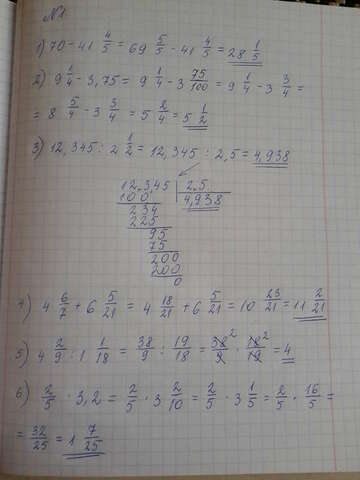 №1
1) 70 - 41 4/5 = 69 5/5 - 41 4/5 = 28 1/5
2) 9 1/4 - 3,75 = 9 1/4 - 3 75/100 = 9 1/4 - 3 3/4 =
= 8 5/4 - 3 3/4 = 5 2/4 = 5 1/2
3) 12,345 : 2 1/2 = 12,345 : 2,5 = 4,938
12.3,45 | 2.5.
100 | 4,938
234
225
95
75
200
200
0
4) 4 6/7 + 6 5/21 = 4 18/21 + 6 5/21 = 10 23/21 = 11 2/21
5) 4 2/9 : 1 1/18 = 38/9 : 19/18 = 38 2/9 · 18 2/19 = 4
6) 2/5 · 3,2 = 2/5 · 3 2/10 = 2/5 · 3 1/5 = 2/5 · 16/5 =
= 32/25 = 1 7/25